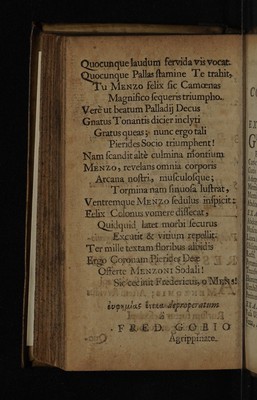 Quocunque laudum fervida vis vocat.
Quocunque Pallas stamine Te trahit,
Tu MENZO felix sic Camœnas
Magnifico sequeris triumpho.
Verè ut beatum Palladij Decus
Gnatus Tonantis dicier inclyti
Gratus queas; nunc ergo tali
Pierides Socio triumphent!
Nam scandit altè culmina montium
MENZO, revelans omnia corporis
Arcana nostri, musculosque;
Tormina nam sinuosa lustrat,
Ventremque MENZO sedulus inspicit:
Felix Colonus vomere dissecat,
Quidquid latet morbi securus
Excutit & vitium repellit:
Ter mille textam floribus albidis
Ergo Coronam Pierides Deæ
Offerte MENZONI Sodali!
Sic cecinit Fredericus, o
εὐφημίας ἕνεκα deproperatum
FRED. GOBIO
Agrippinate.